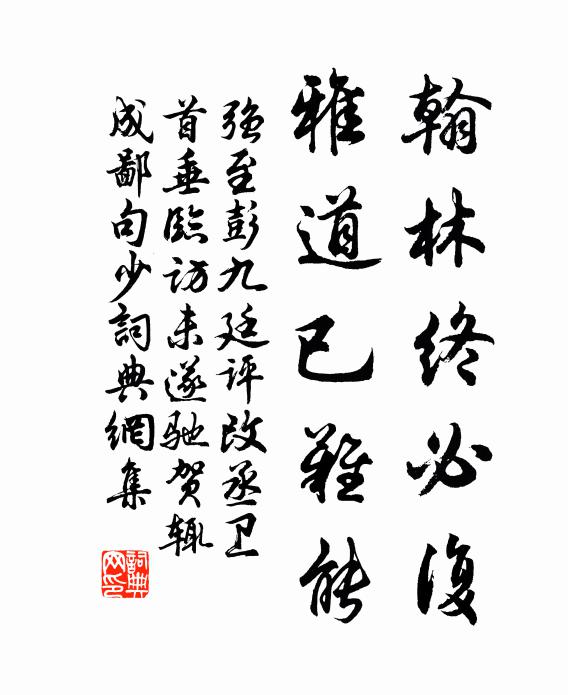 翰林终必復
雅道已难能
强至彭九廷评改丞卫
首垂臨访未遂驰贺辄
成鄙句少詞典網集
詞典网印